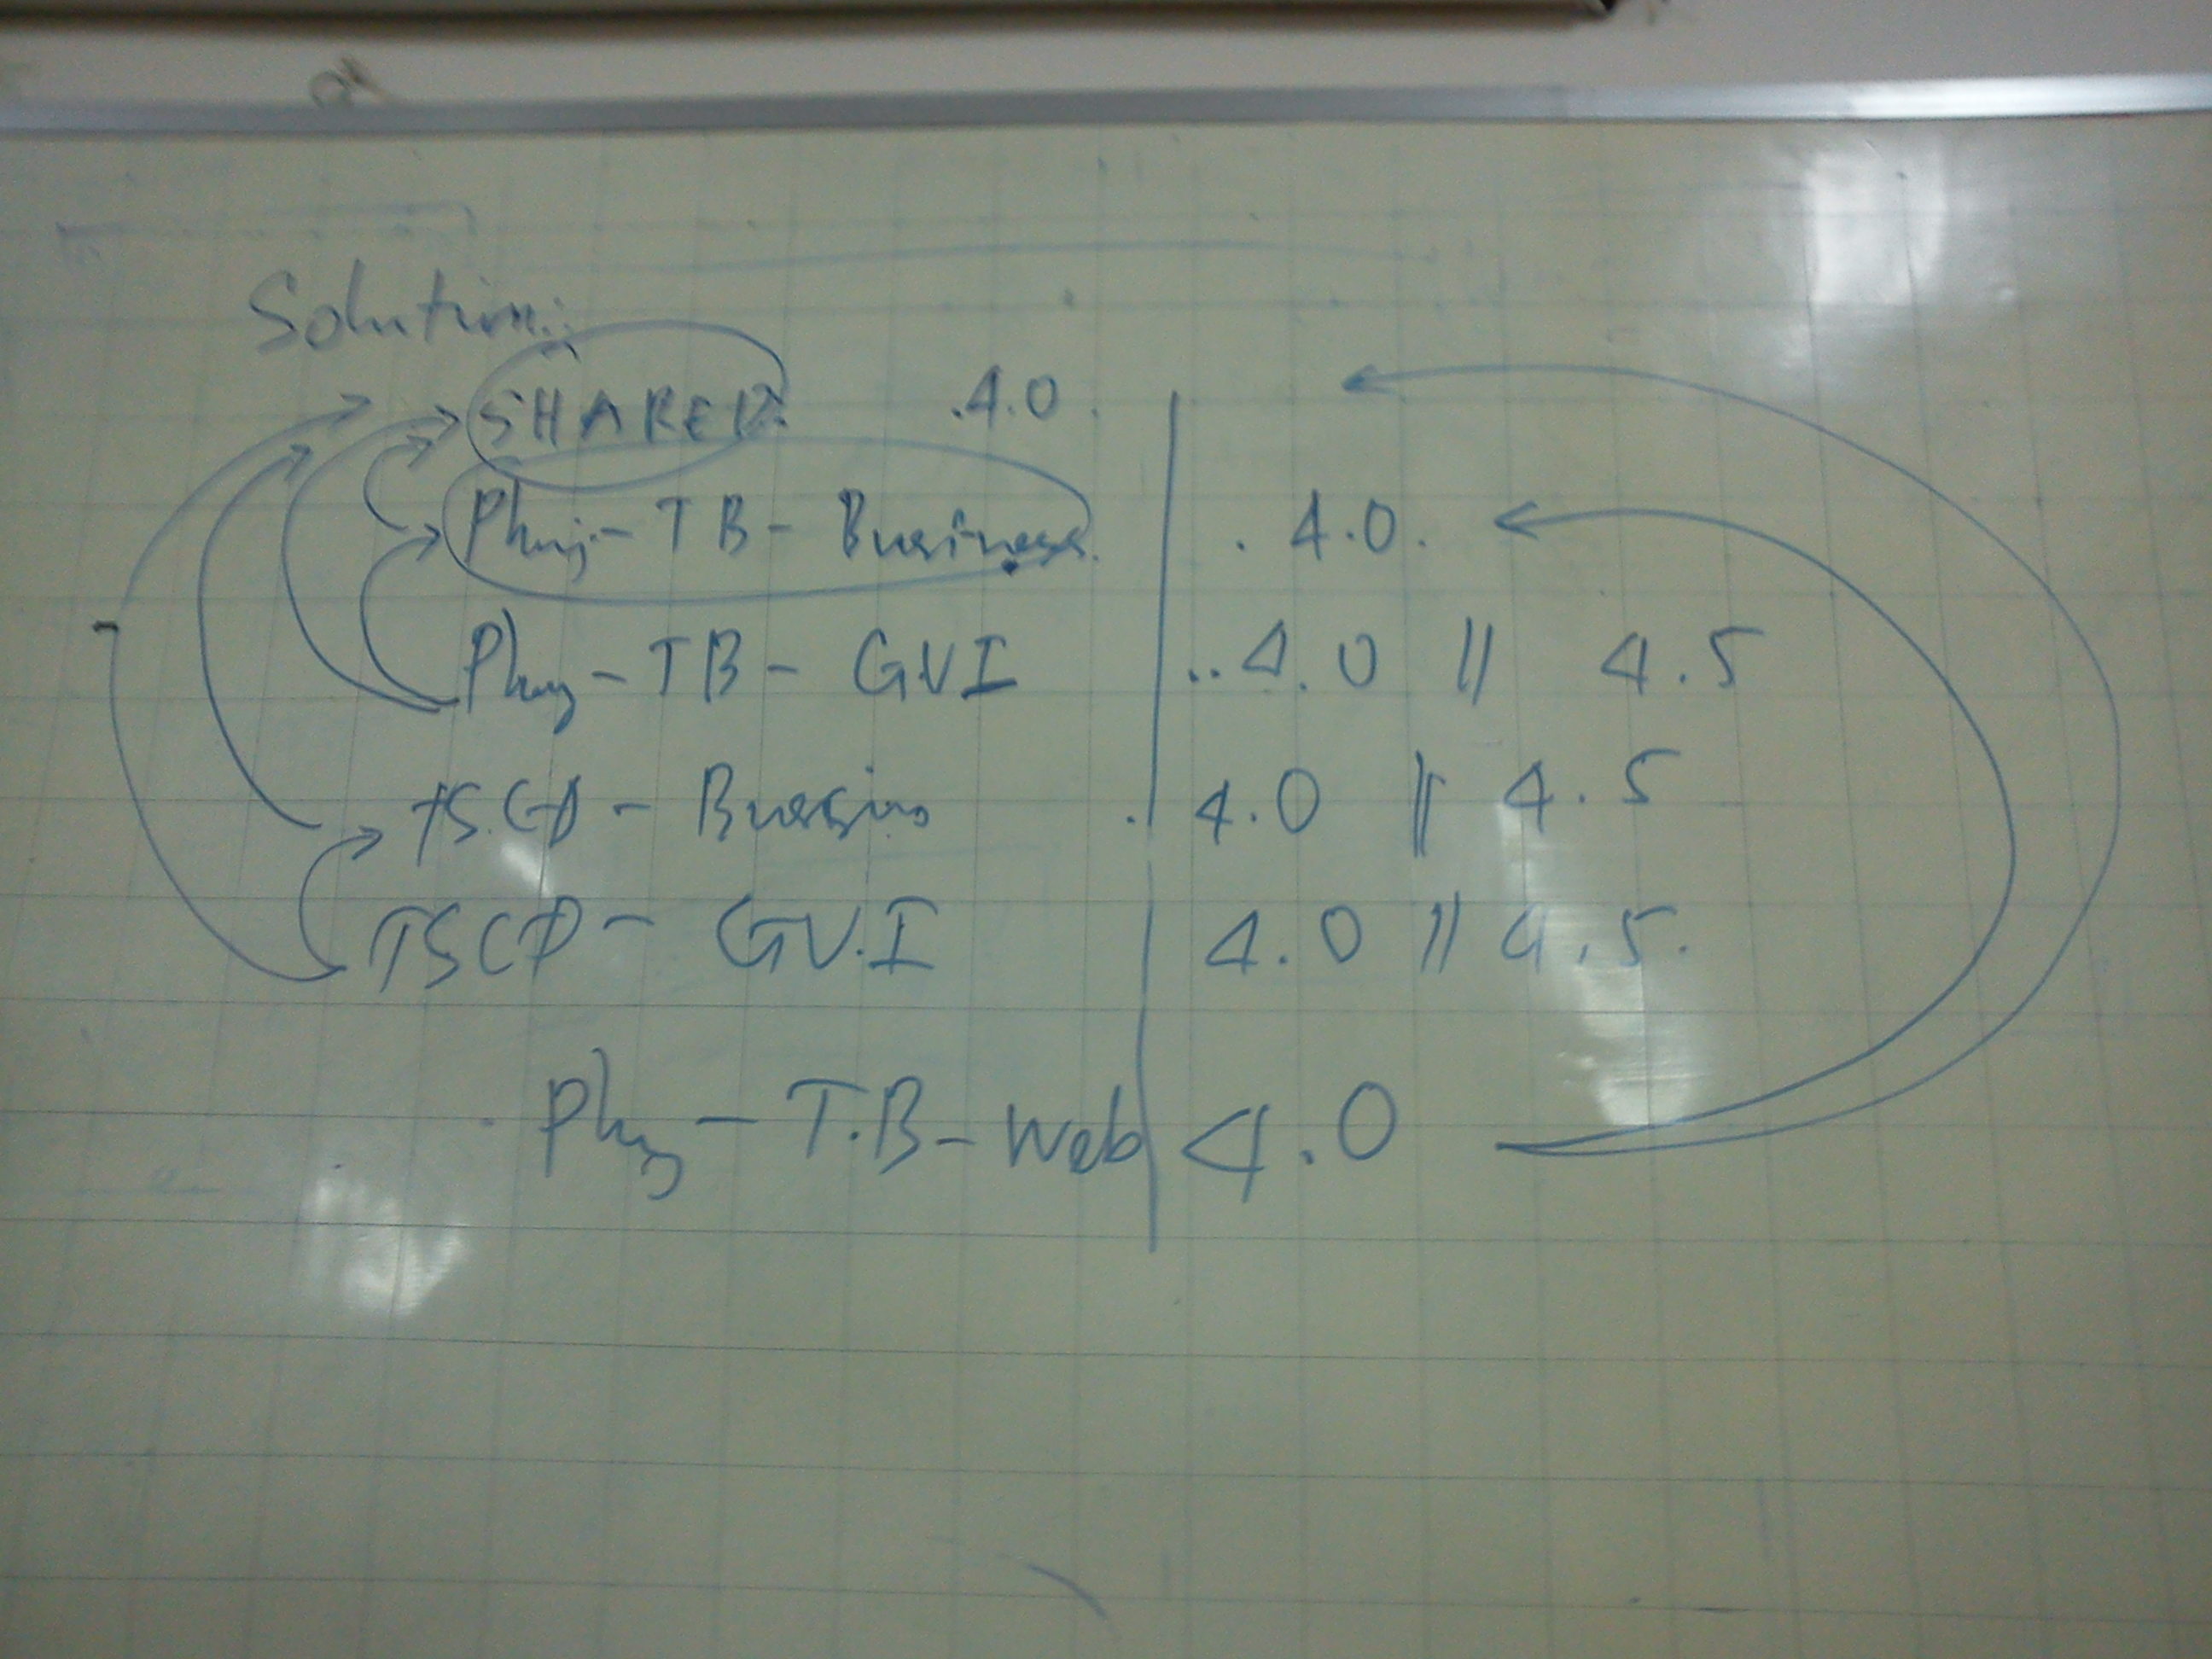 Solution:
SHARED. .4.0.
Phuj-TB-Business. . 4.0.
Phuj-TB-GUI ..4.0 || 4.5
TSCD - Bussins . 4.0 || 4.5
TSCD - GU.I 4.0 || 4.5.
. Phuj-T.B-Web 4.0